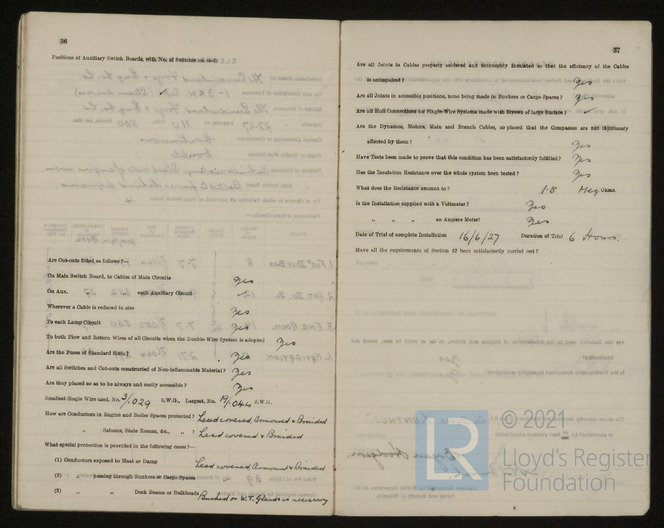 36
Positions of Auxiliary Switch Boards, with No. of Switches on each
Are Cut-outs fitted as follows?—
On Main Switch Board, to Cables of Main Circuits Yes
On Aux. „ „ each Auxiliary Circuit
Wherever a Cable is reduced in size Yes
To each Lamp Circuit Yes
To both Flow and Return Wires of all Circuits when the Double-Wire System is adopted Yes
Are the Fuses of Standard Sizes? Yes
Are all Switches and Cut-outs constructed of Non-inflammable Material? Yes
Are they placed so as to be always and easily accessible? Yes
Smallest Single Wire used, No. 3/.029 S.W.G., Largest, No. 19/.044 S.W.G.
How are Conductors in Engine and Boiler Spaces protected? Lead covered Armoured & Braided
„ Saloons, State Rooms, &c., „ ? Lead covered & Braided
What special protection is provided in the following cases?—
(1) Conductors exposed to Heat or Damp Lead covered Armoured & Braided
(2) „ passing through Bunkers or Cargo Spaces „
(3) „ „ Deck Beams or Bulkheads Bushed or W.T. Glands as necessary
37
Are all Joints in Cables properly soldered and thoroughly insulated so that the efficiency of the Cables
is unimpaired? Yes
Are all Joints in accessible positions, none being made in Bunkers or Cargo Spaces? Yes
Are all Hull Connections for Single-Wire Systems made with Screws of large Surface?
Are the Dynamos, Motors, Main and Branch Cables, so placed that the Compasses are not injuriously
affected by them? Yes
Have Tests been made to prove that this condition has been satisfactorily fulfilled? Yes
Has the Insulation Resistance over the whole system been tested? Yes
What does the Resistance amount to? 1.5 Meg Ohms.
Is the Installation supplied with a Voltmeter? Yes
„ „ „ an Ampere Meter? Yes
Date of Trial of complete Installation 16/6/27 Duration of Trial 6 Hours.
Have all the requirements of Section 42 been satisfactorily carried out?
LR
© 2021
Lloyd's Register
Foundation